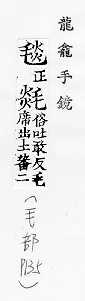 龍龕手鏡
毯正𣭻俗吐敢反毛
席出土蕃二
(毛部
P135)